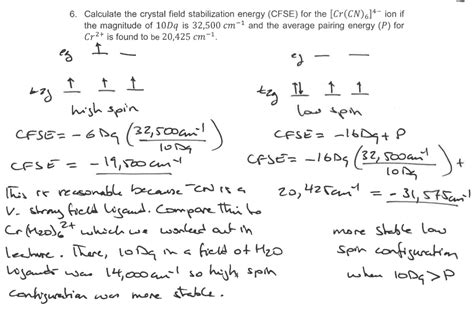 6. Calculate the crystal field stabilization energy (CFSE) for the [Cr(CN)₆]⁴⁻ ion if
the magnitude of 10Dq is 32,500 cm⁻¹ and the average pairing energy (P) for
Cr²⁺ is found to be 20,425 cm⁻¹.
eg ↑ —
t2g ↑ ↑ ↑
high spin
CFSE = -6Dq (32,500cm⁻¹/10Dq)
CFSE = -19,500cm⁻¹
This is reasonable because ⁻CN is a
v. strong field ligand. Compare this to
Cr(H2O)6²⁺ which we worked out in
lecture. There, 10Dq in a field of H2O
ligands was 14,000cm⁻¹ so high spin
configuration was more stable.
eg — —
t2g ↑↓ ↑ ↑
low spin
CFSE = -16Dq + P
CFSE = -16Dq (32,500cm⁻¹/10Dq) +
20,425cm⁻¹ = -31,575cm⁻¹
more stable low
spin configuration
when 10Dq > P